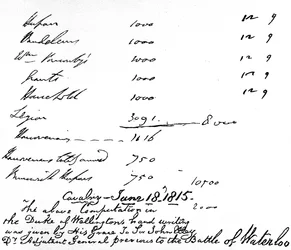 1000 12 9
Vandeleurs 1000 12 9
Wm Ponsonby's 1000 12 9
Grants 1000 12 9
Household 1000 12 9
Legion 3091 8000
Hanoverians 1616
750
Brunswick Hussars 750
10500
Cavalry June 18th 1815.
The above Computation in 2000
the Duke of Wellington's hand writing
was given by His Grace to Sr John Elley
Dy Adjutant General previous to the Battle of Waterloo